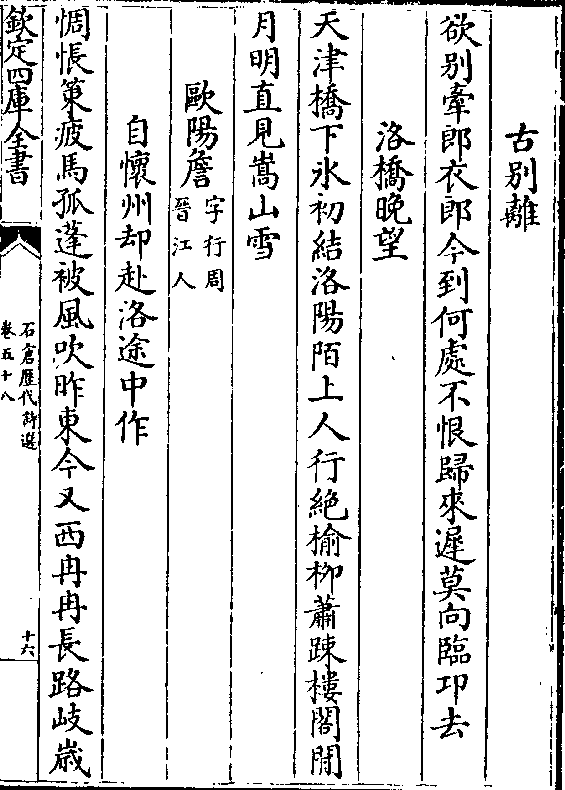 古別離
欲别牽郎衣郎今到何處不恨歸來遲莫向臨卭去
洛橋晚望
天津橋下氷初結洛陽陌上人行絶榆栁蕭踈樓閣閒
月明直見嵩山雪
歐陽詹字行周晉江人
自懷州却赴洛途中作
惆悵策疲馬孤蓬被風吹昨東今又西冉冉長路岐歲
欽定四庫全書
石倉歷代詩選
卷五十八
十六